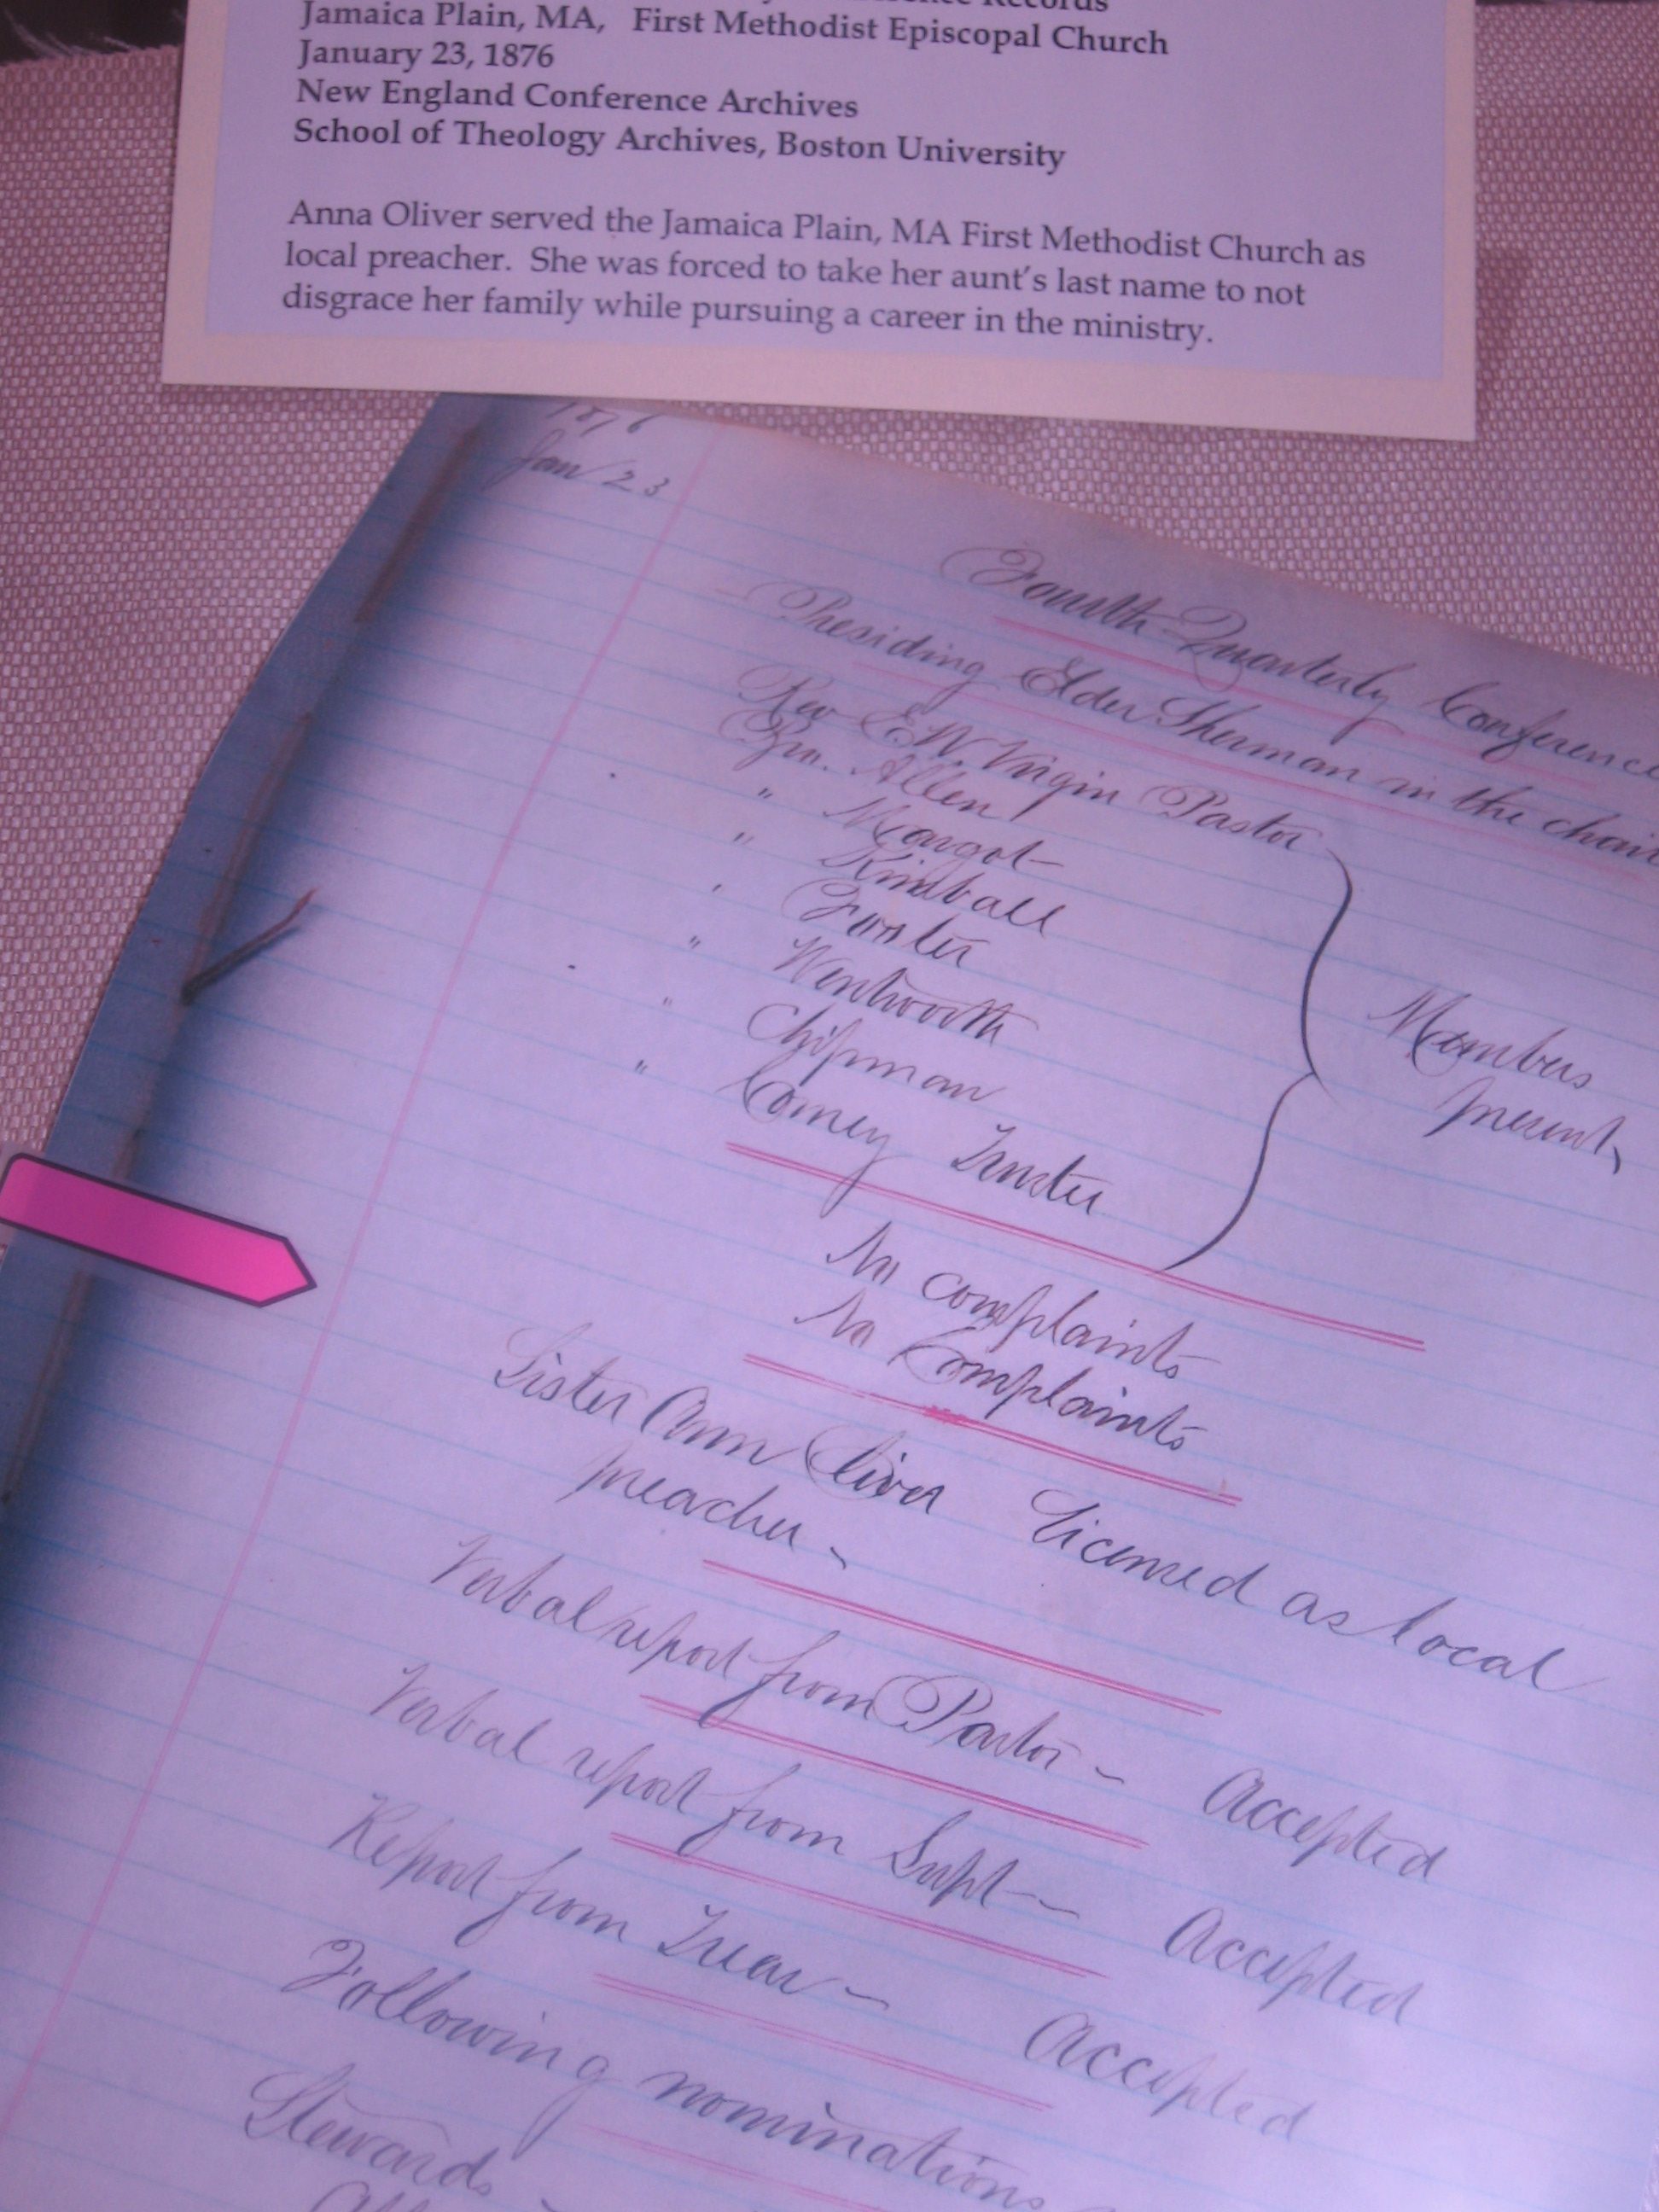 Records
Jamaica Plain, MA, First Methodist Episcopal Church
January 23, 1876
New England Conference Archives
School of Theology Archives, Boston University
Anna Oliver served the Jamaica Plain, MA First Methodist Church as
local preacher. She was forced to take her aunt's last name to not
disgrace her family while pursuing a career in the ministry.
1876
Jan 23
Fourth Quarterly Conference
Presiding Elder Sherman in the chair
Rev E W Virgin Pastor
Bro. Allen
" 
" Kimball
" Foster
" Wentworth
" Chipman
" Comey Trustee
Members
present
No complaints
No Complaints
Sister Ann Oliver Licensed as local
preacher
Verbal report from Pastor - Accepted
Verbal report from Supt - Accepted
Report from Treas - Accepted
Following nominations
Stewards